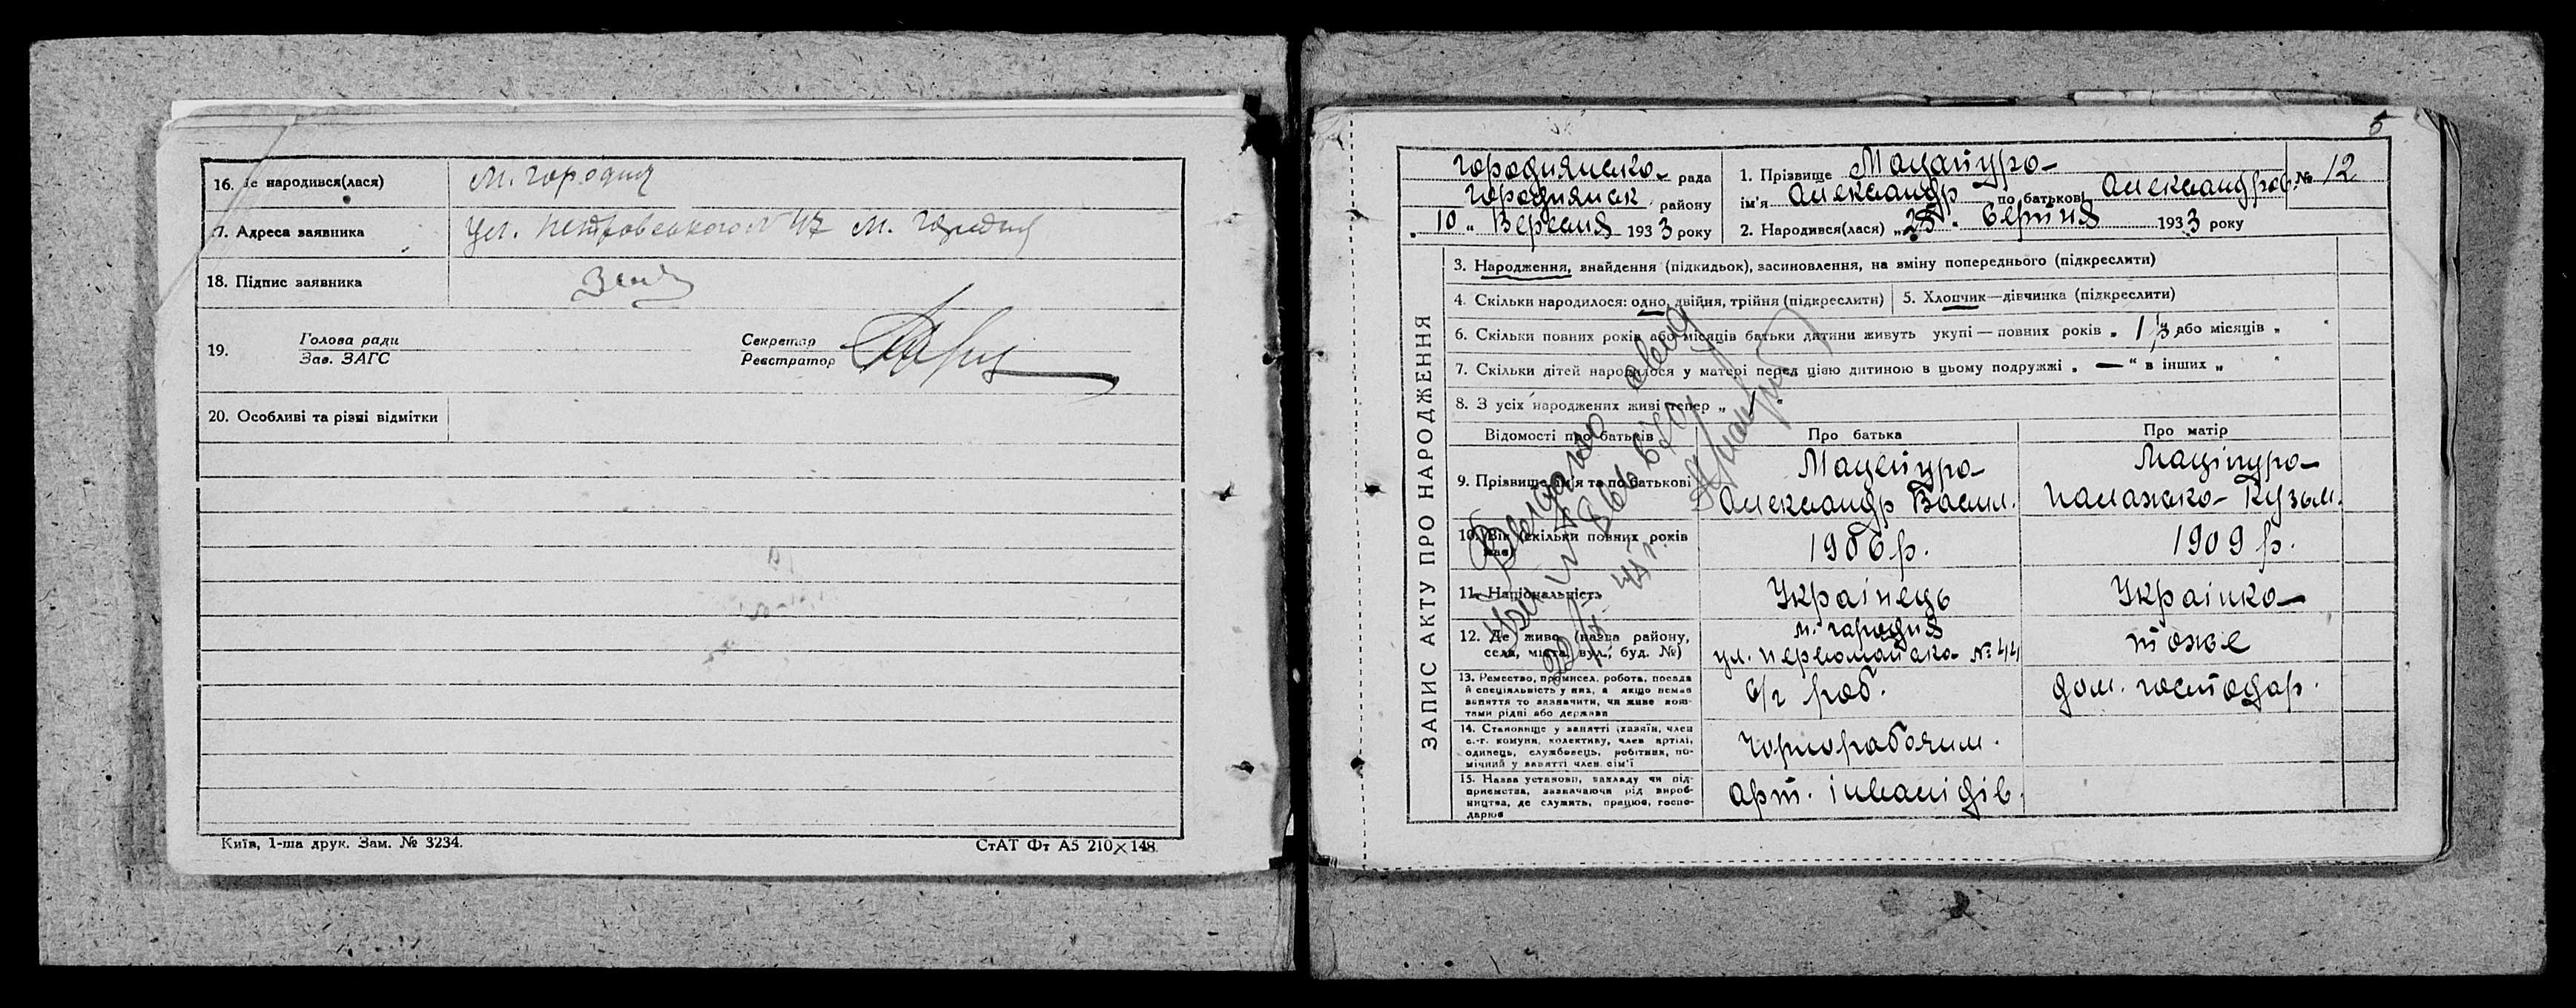 16. Де народився(лася) м. Городня
17. Адреса заявника ул. Петровського № 47 м. Городня
18. Підпис заявника
19. Голова ради
Зав. ЗАГС
Секретар
Реєстратор
20. Особливі та різні відмітки
Київ, 1-ша друк. Зам. № 3234.
СтАТ Фт А5 210×148.
5
ЗАПИС АКТУ ПРО НАРОДЖЕННЯ
Городнянсько- рада
Городнянск району
"10" Вересня 1933 року
1. Прізвище Мацапуро-
ім'я Александр по батькові Александров. № 12
2. Народився(лася) " " серпня 1933 року
3. Народження, знайдення (підкидьок), засиновлення, на зміну попереднього (підкреслити)
4. Скільки народилося: одно, двійня, трійня (підкреслити)
5. Хлопчик—дівчинка (підкреслити)
6. Скільки повних років або місяців батьки дитини живуть укупі — повних років " або місяців "
7. Скільки дітей народилося у матері перед цією дитиною в цьому подружжі " — " в інших " "
8. З усіх народжених живі тепер "
Відомості про батьків
Про батька
Про матір
9. Прізвище, ім'я та по батькові
Мацепуро-
Александр Васил.
Маціпуро-
Палажко- Кузьм.
10. Вік (скільки повних років має)
1906 р.
1909 р.
11. Національність
Українець
Українко-
12. Де живе (назва району,
села, міста, вул., буд. №)
м. Городня
ул. Первомайско- № 44
тоже
13. Ремество, промисел, робота, посада
й спеціяльність у них, а якщо немає
заняття то зазначити, чи живе кош-
тами рідні або держави
роб.
дом. господар.
14. Становище у занятті (хазяїн, член
с.-г. комуни, колективу, член артілі,
одинець, службовець, робітник, по-
мічний у занятті член сім'ї
Чорноработим.
15. Назва установи, закладу чи під-
приємства, зазначаючи рід вироб-
ництва, де служить, працює, госпо-
дарює
арт. інвалідів.